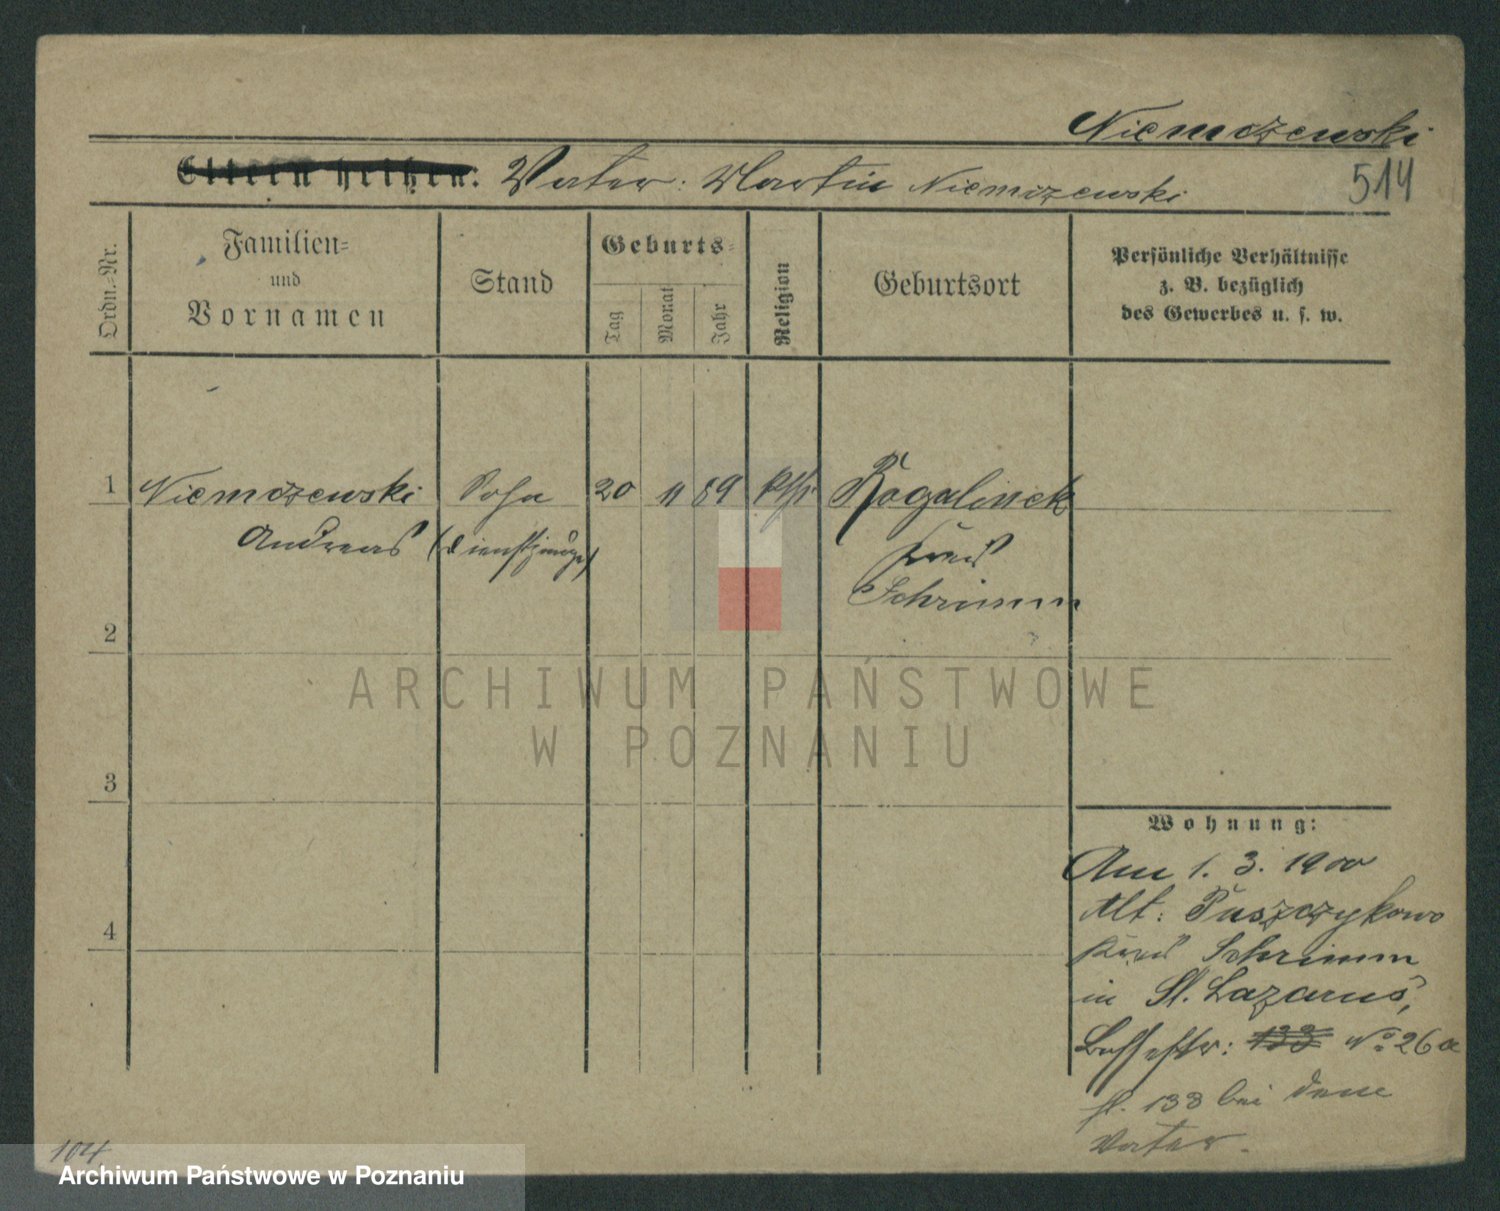 Niemczewski
514
Eltern heißen: Vater: Martin Niemczewski
Ordn.-Nr.
Familien-
und
Vornamen
Stand
Geburts-
Tag
Monat
Jahr
Religion
Geburtsort
Persönliche Verhältnisse
z. B. bezüglich
des Gewerbes u. s. w.
1 Niemczewski Sohn 20 11 89 Rogalinek
Andreas (Dienstjunge) Kreis
Schrimm
2
ARCHIWUM PAŃSTWOWE
W POZNANIU
3
Wohnung:
Am 1. 3. 1900
Alt: Puszczykowo
4
Kreis Schrimm
in St. Lazarus,
133 No 26a
133 bei dem
Vater.
104
Archiwum Państwowe w Poznaniu